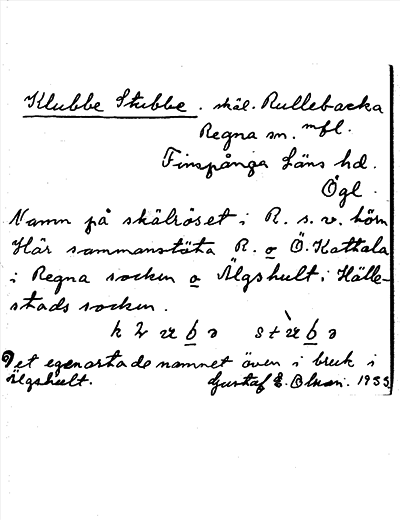 Klubbe Stubbe. skäl. Rullebacka
Regna sn. mfl.
Finspånga Läns hd.
Ögl.
Namn på skälröset i R. s. v. hörn
Här sammanstöta R. o Ö. Kattala
i Regna socken o Älgshult i Hälle-
stads socken.
Det egenartade namnet även i bruk i
Älgshult. Gustaf E. Olson. 1933